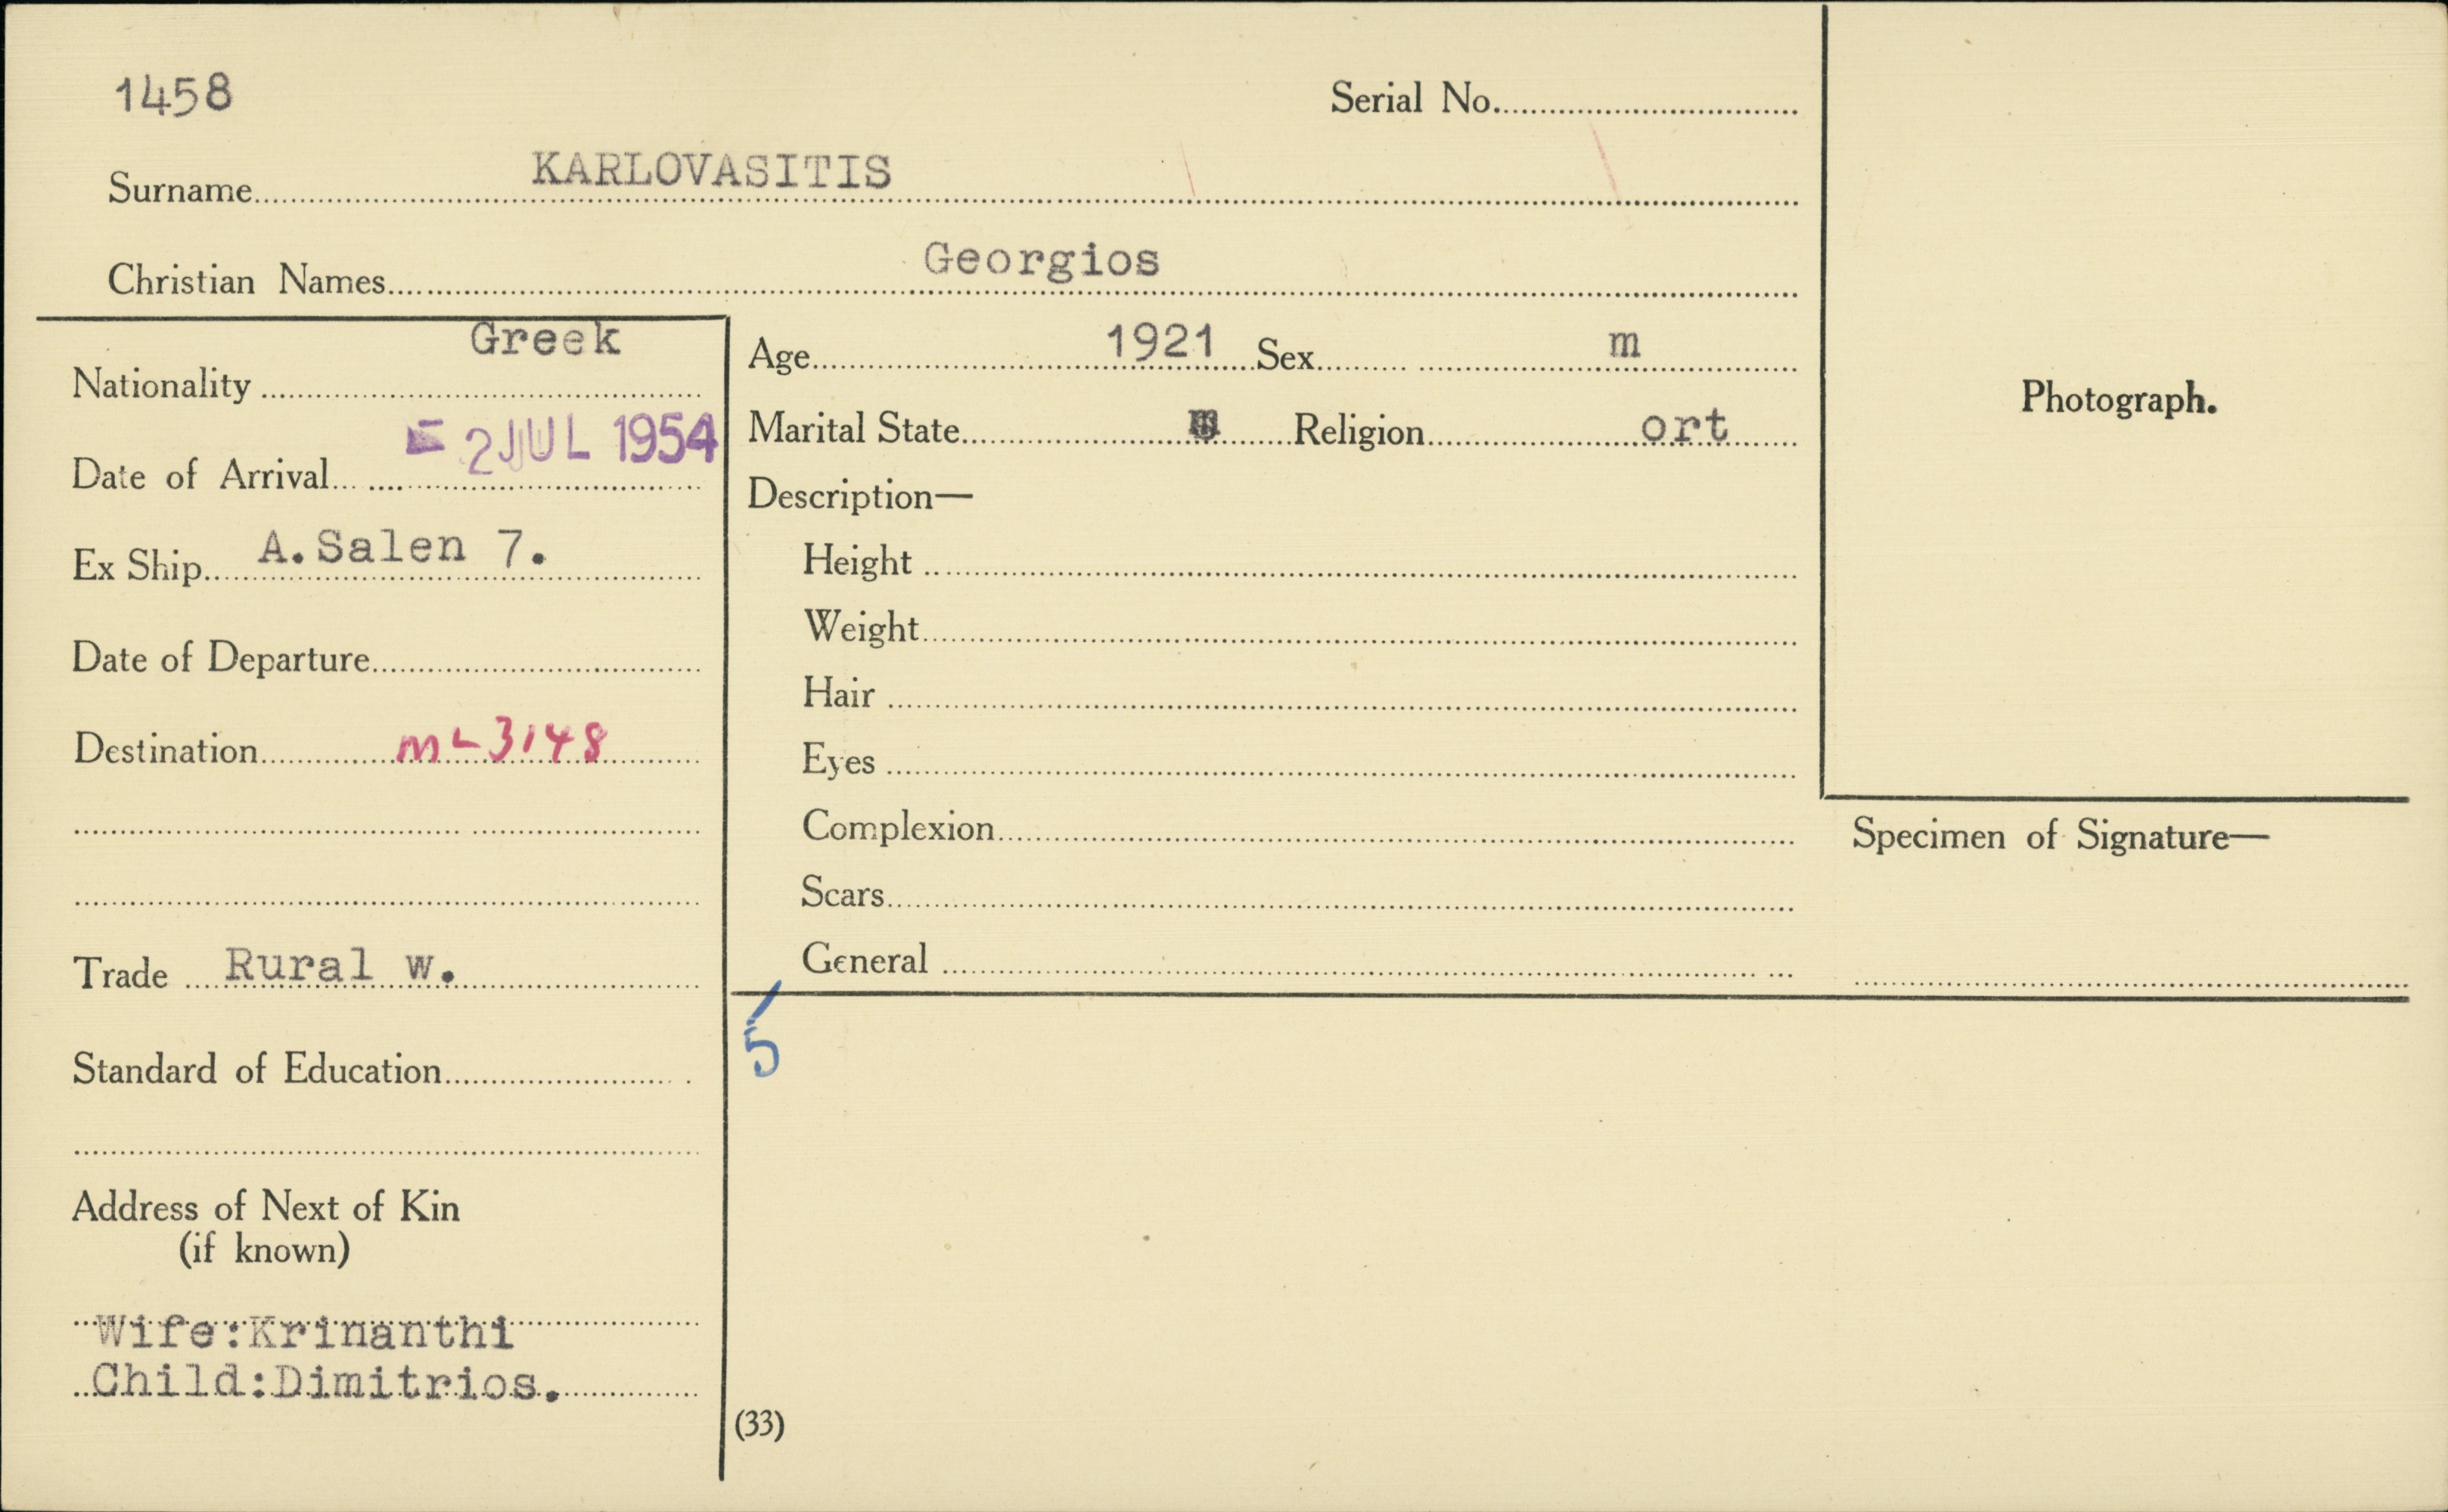 1458
Serial No.
KARLOVASITIS
Surname
Georgios
Christian Names
Greek
Nationality
2 JUL 1954
Date of Arrival
A.Salen 7.
Ex Ship
Date of Departure
Destination mL 3148
Trade Rural w.
Standard of Education
Address of Next of Kin
(if known)
Wife:Krinanthi
Child:Dimitrios.
Age 1921 Sex m
Marital State m Religion ort
Description—
Height
Weight
Hair
Eyes
Complexion
Scars
General
5
(33)
Photograph.
Specimen of Signature—